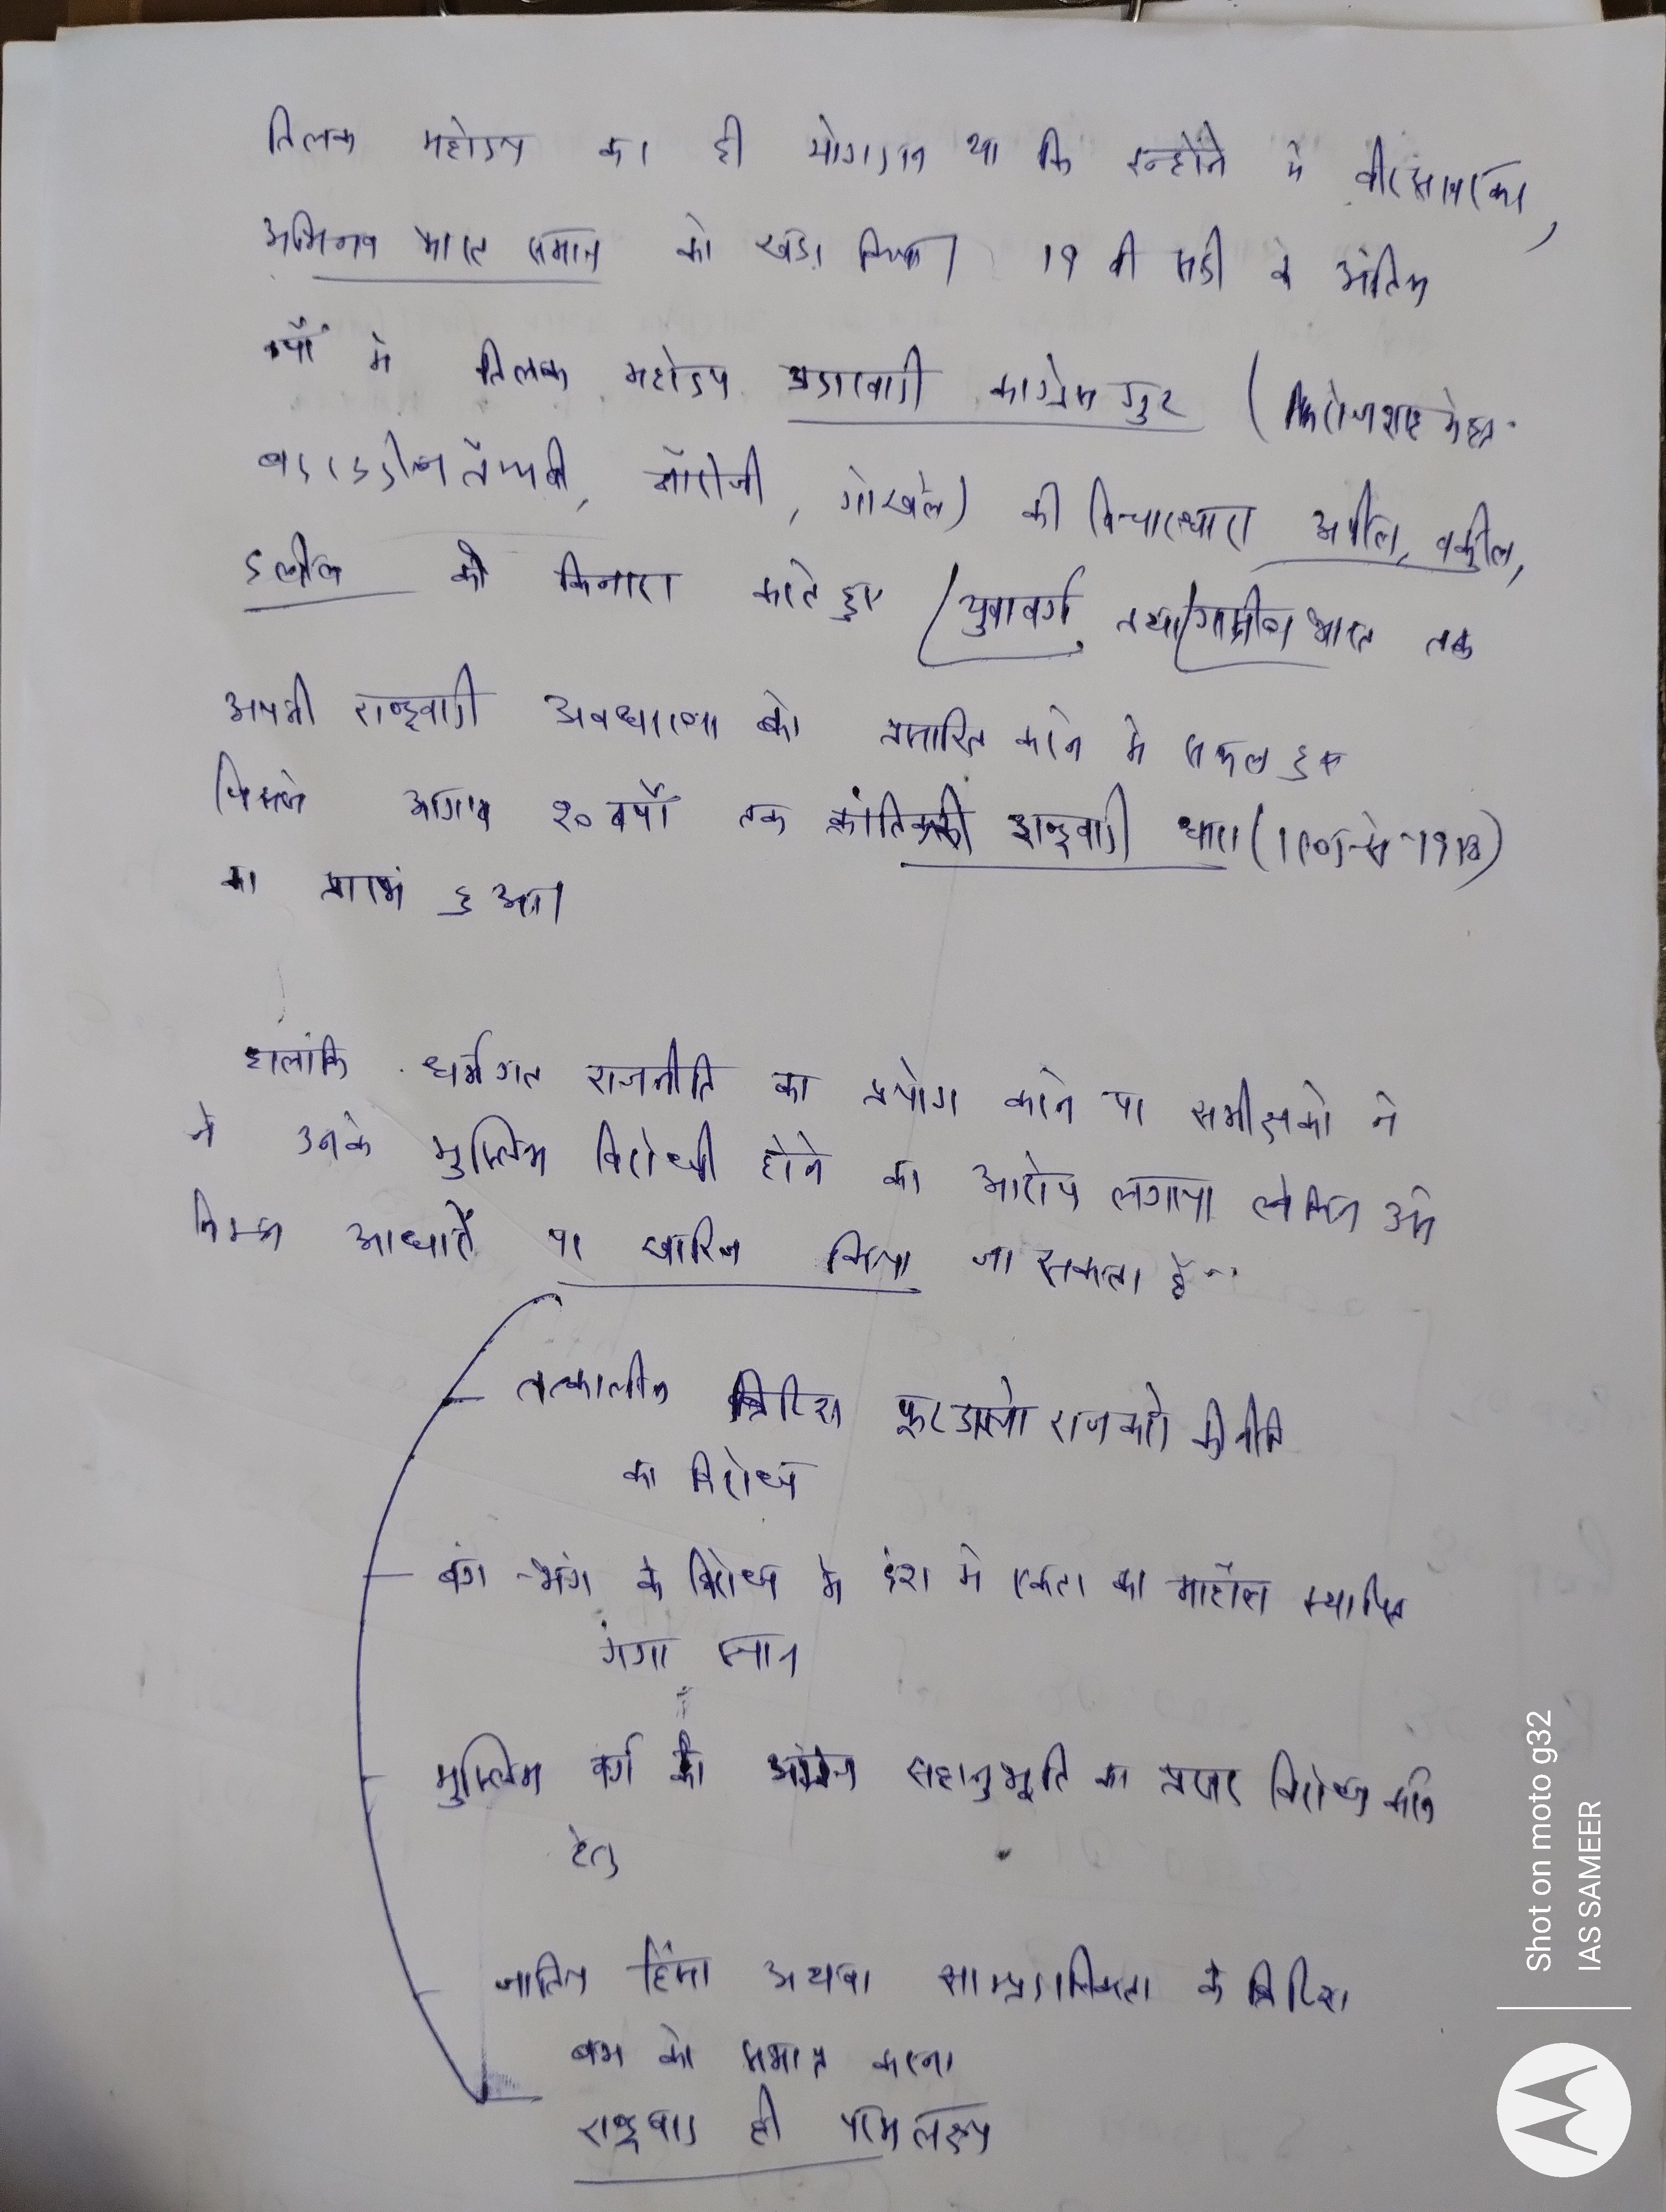 तिलक महोदय का ही योगदान था कि इन्होंने मे वीर सावरकर,
अभिनव भारत समाज को खडा किया। 19 वी सदी के अंतिम
वर्षों मे तिलक महोदय उदारवादी काग्रेस गुट (फिरोजशाह मेहता
बदरुद्दीन तैय्यबी, नौरोजी, गोखले) की विचारधारा अपील, वकील,
दलील को किनारा करते हुए युवावर्ग तथा ग्रामीण भारत तक
अपनी राष्ट्रवादी अवधारणा को प्रसारित करने मे सफल हुए
जिससे आगामी २० वर्षों तक क्रांतिकारी राष्ट्रवादी धारा (1905 से 1918)
का प्रारंभ हुआ।
हालांकि धर्मगत राजनीति का प्रयोग करने पर समीक्षको ने
ने उनके मुस्लिम विरोधी होने का आरोप लगाया लेकिन उसे
निम्न आधारों पर खारिज किया जा सकता है--
तत्कालीन ब्रिटिश फूट डालो राज करो की नीति
का विरोध
बंग-भंग के विरोध मे देश मे एकता का माहौल स्थापित
गंगा स्नान
मुस्लिम वर्ग की सहानुभूति का प्रखर विरोध करने
हेतु
जातिय हिंसा अथवा साम्प्रदायिकता के ब्रिटिश
बम को समाप्त करना
राष्ट्रवाद ही परम लक्ष्य
Shot on moto g32
IAS SAMEER